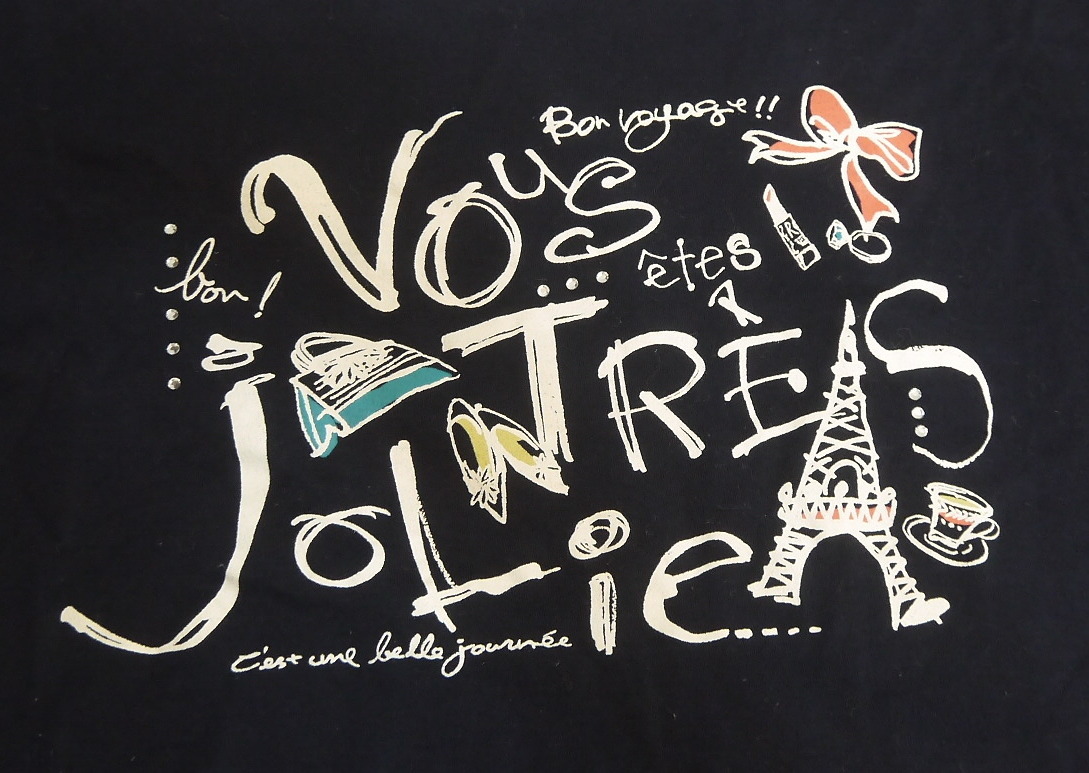 Bon voyage!!
Vous
êtes
bon!
TRÈS
JoLie....
c'est une belle journée